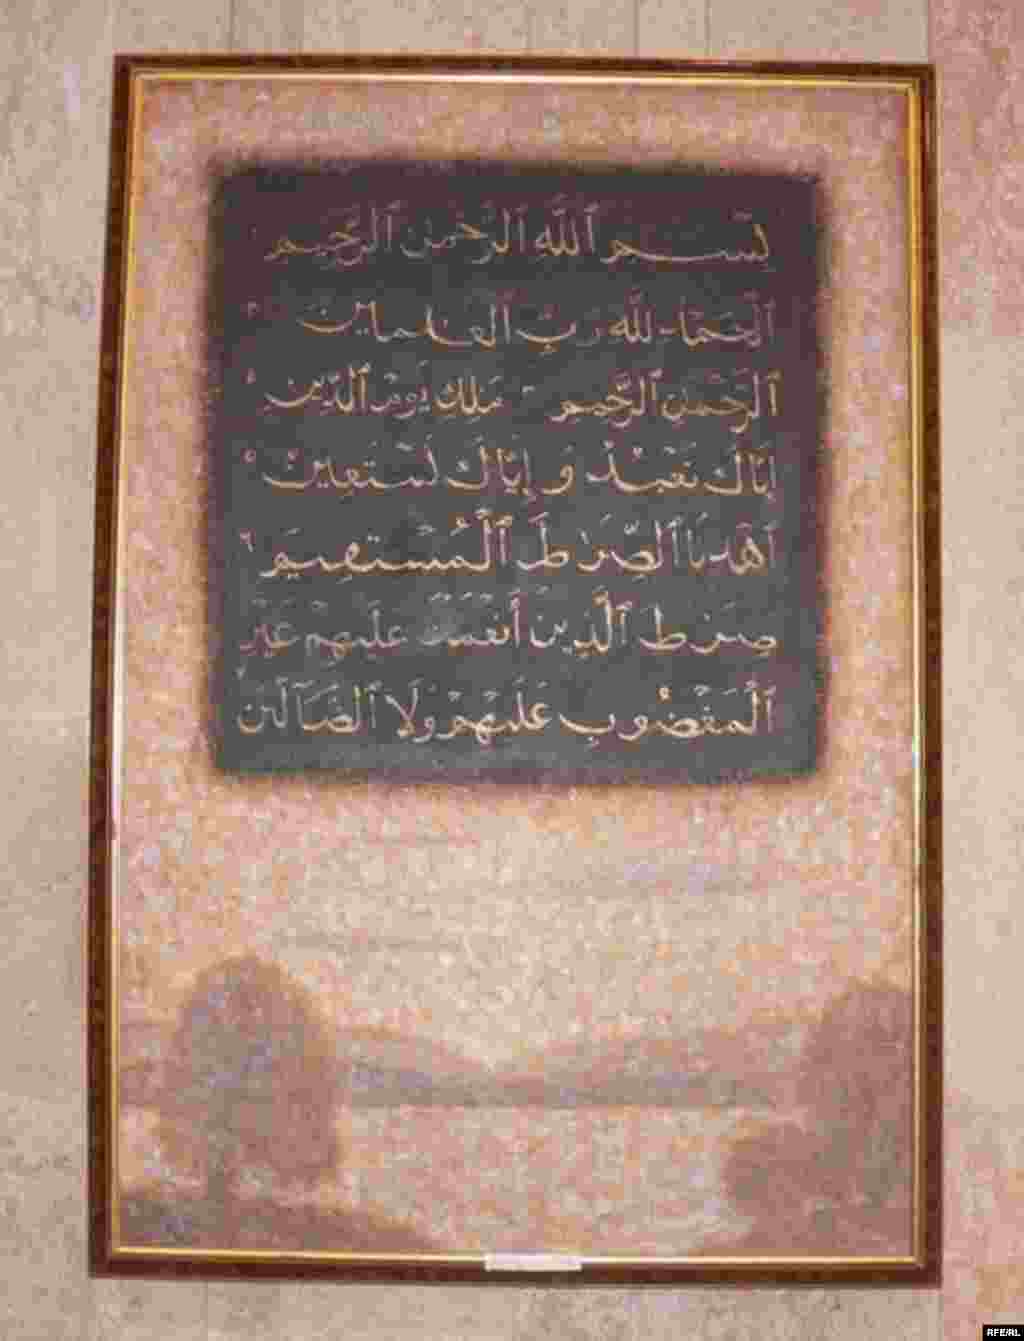 بِسْمِ ٱللَّهِ ٱلرَّحْمٰنِ ٱلرَّحِيمِ
ٱلْحَمْدُ لِلَّهِ رَبِّ ٱلْعَٰلَمِينَ ٢
ٱلرَّحْمٰنِ ٱلرَّحِيمِ ٣ مَٰلِكِ يَوْمِ ٱلدِّينِ ٤
إِيَّاكَ نَعْبُدُ وَ إِيَّاكَ نَسْتَعِينُ ٥
ٱهْدِنَا ٱلصِّرَٰطَ ٱلْمُسْتَقِيمَ ٦
صِرَٰطَ ٱلَّذِينَ أَنْعَمْتَ عَلَيْهِمْ غَيْرِ
ٱلْمَغْضُوبِ عَلَيْهِمْ وَلَا ٱلضَّآلِّينَ ٧
RFE/RL